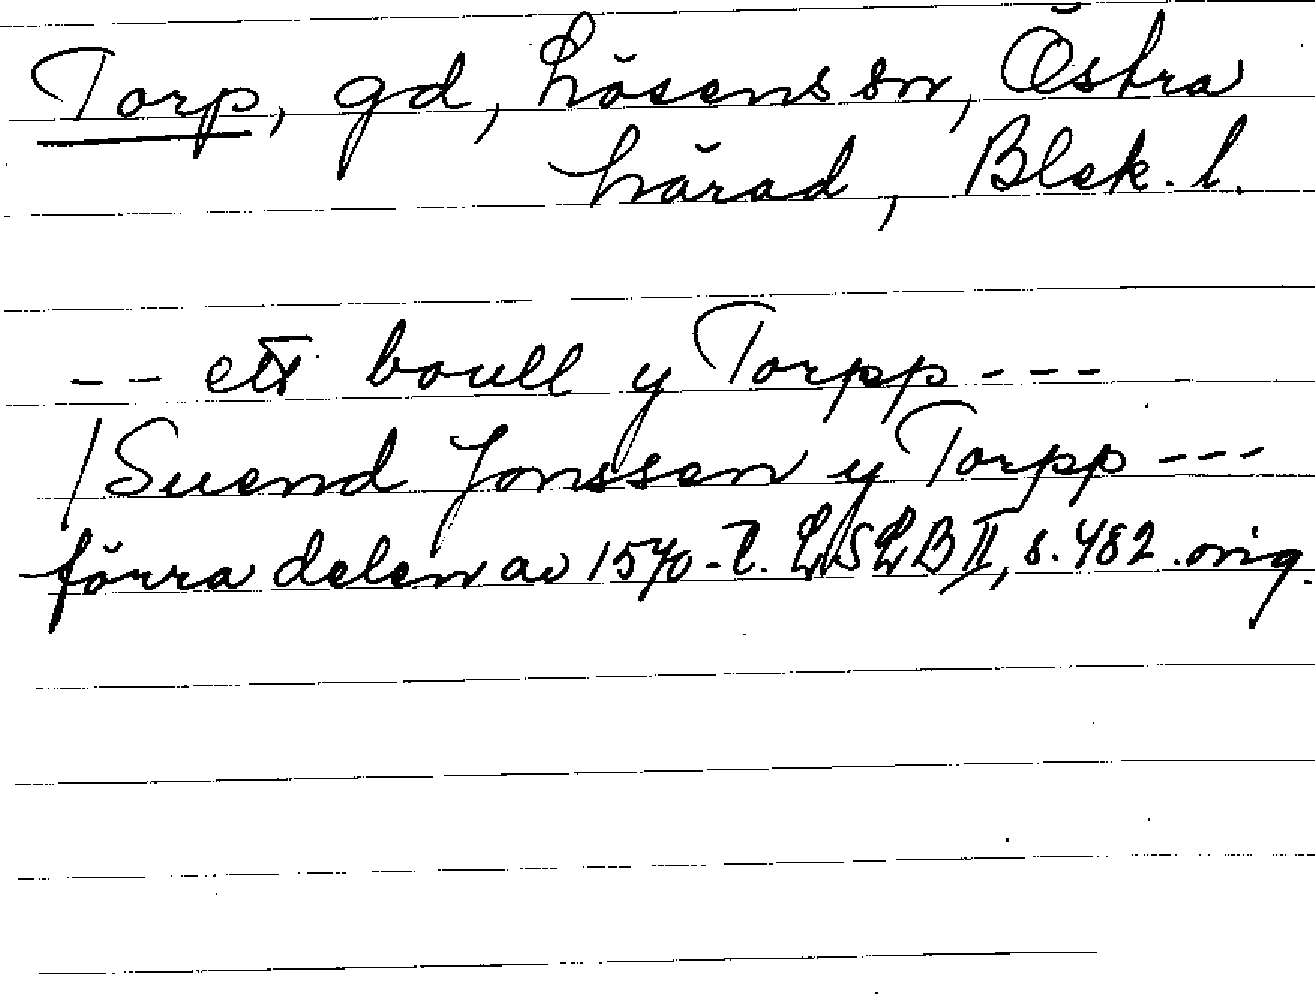 Torp, gd, Lösens sn, Östra
härad, Blek. l.
-- ett boull y Torpp ---
/Suend Jonssen y Torpp ---
förra delen av 1570-t. LSLB II, s. 482. orig.